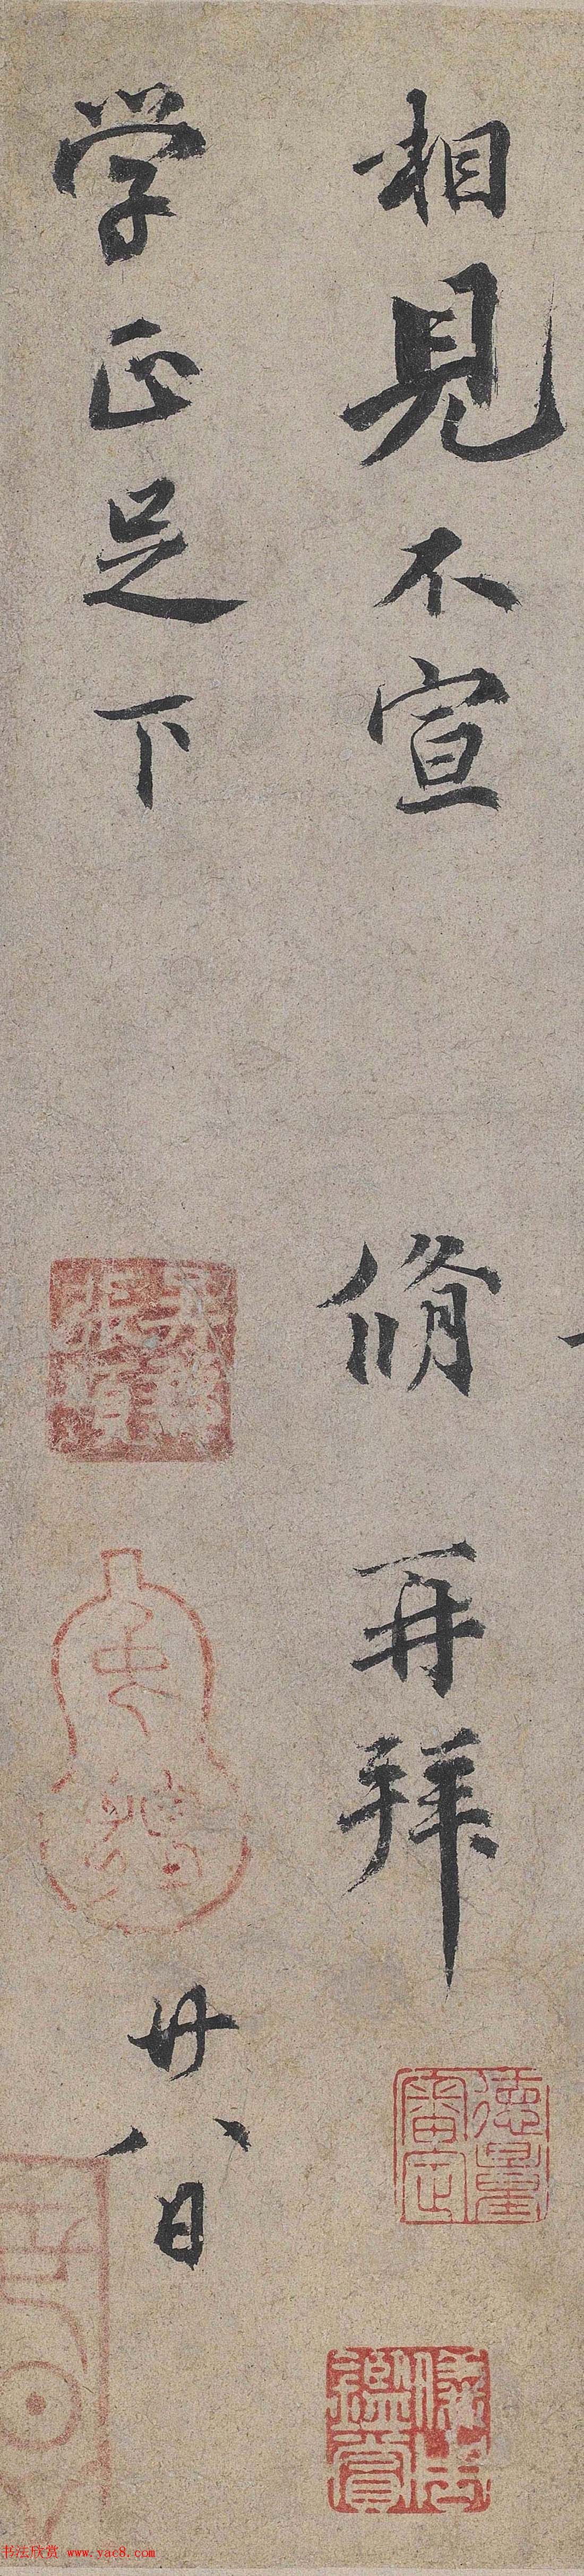 相見不宣
脩再拜
学正足下
廿八日
德量審定
书法欣赏 www.yac8.com